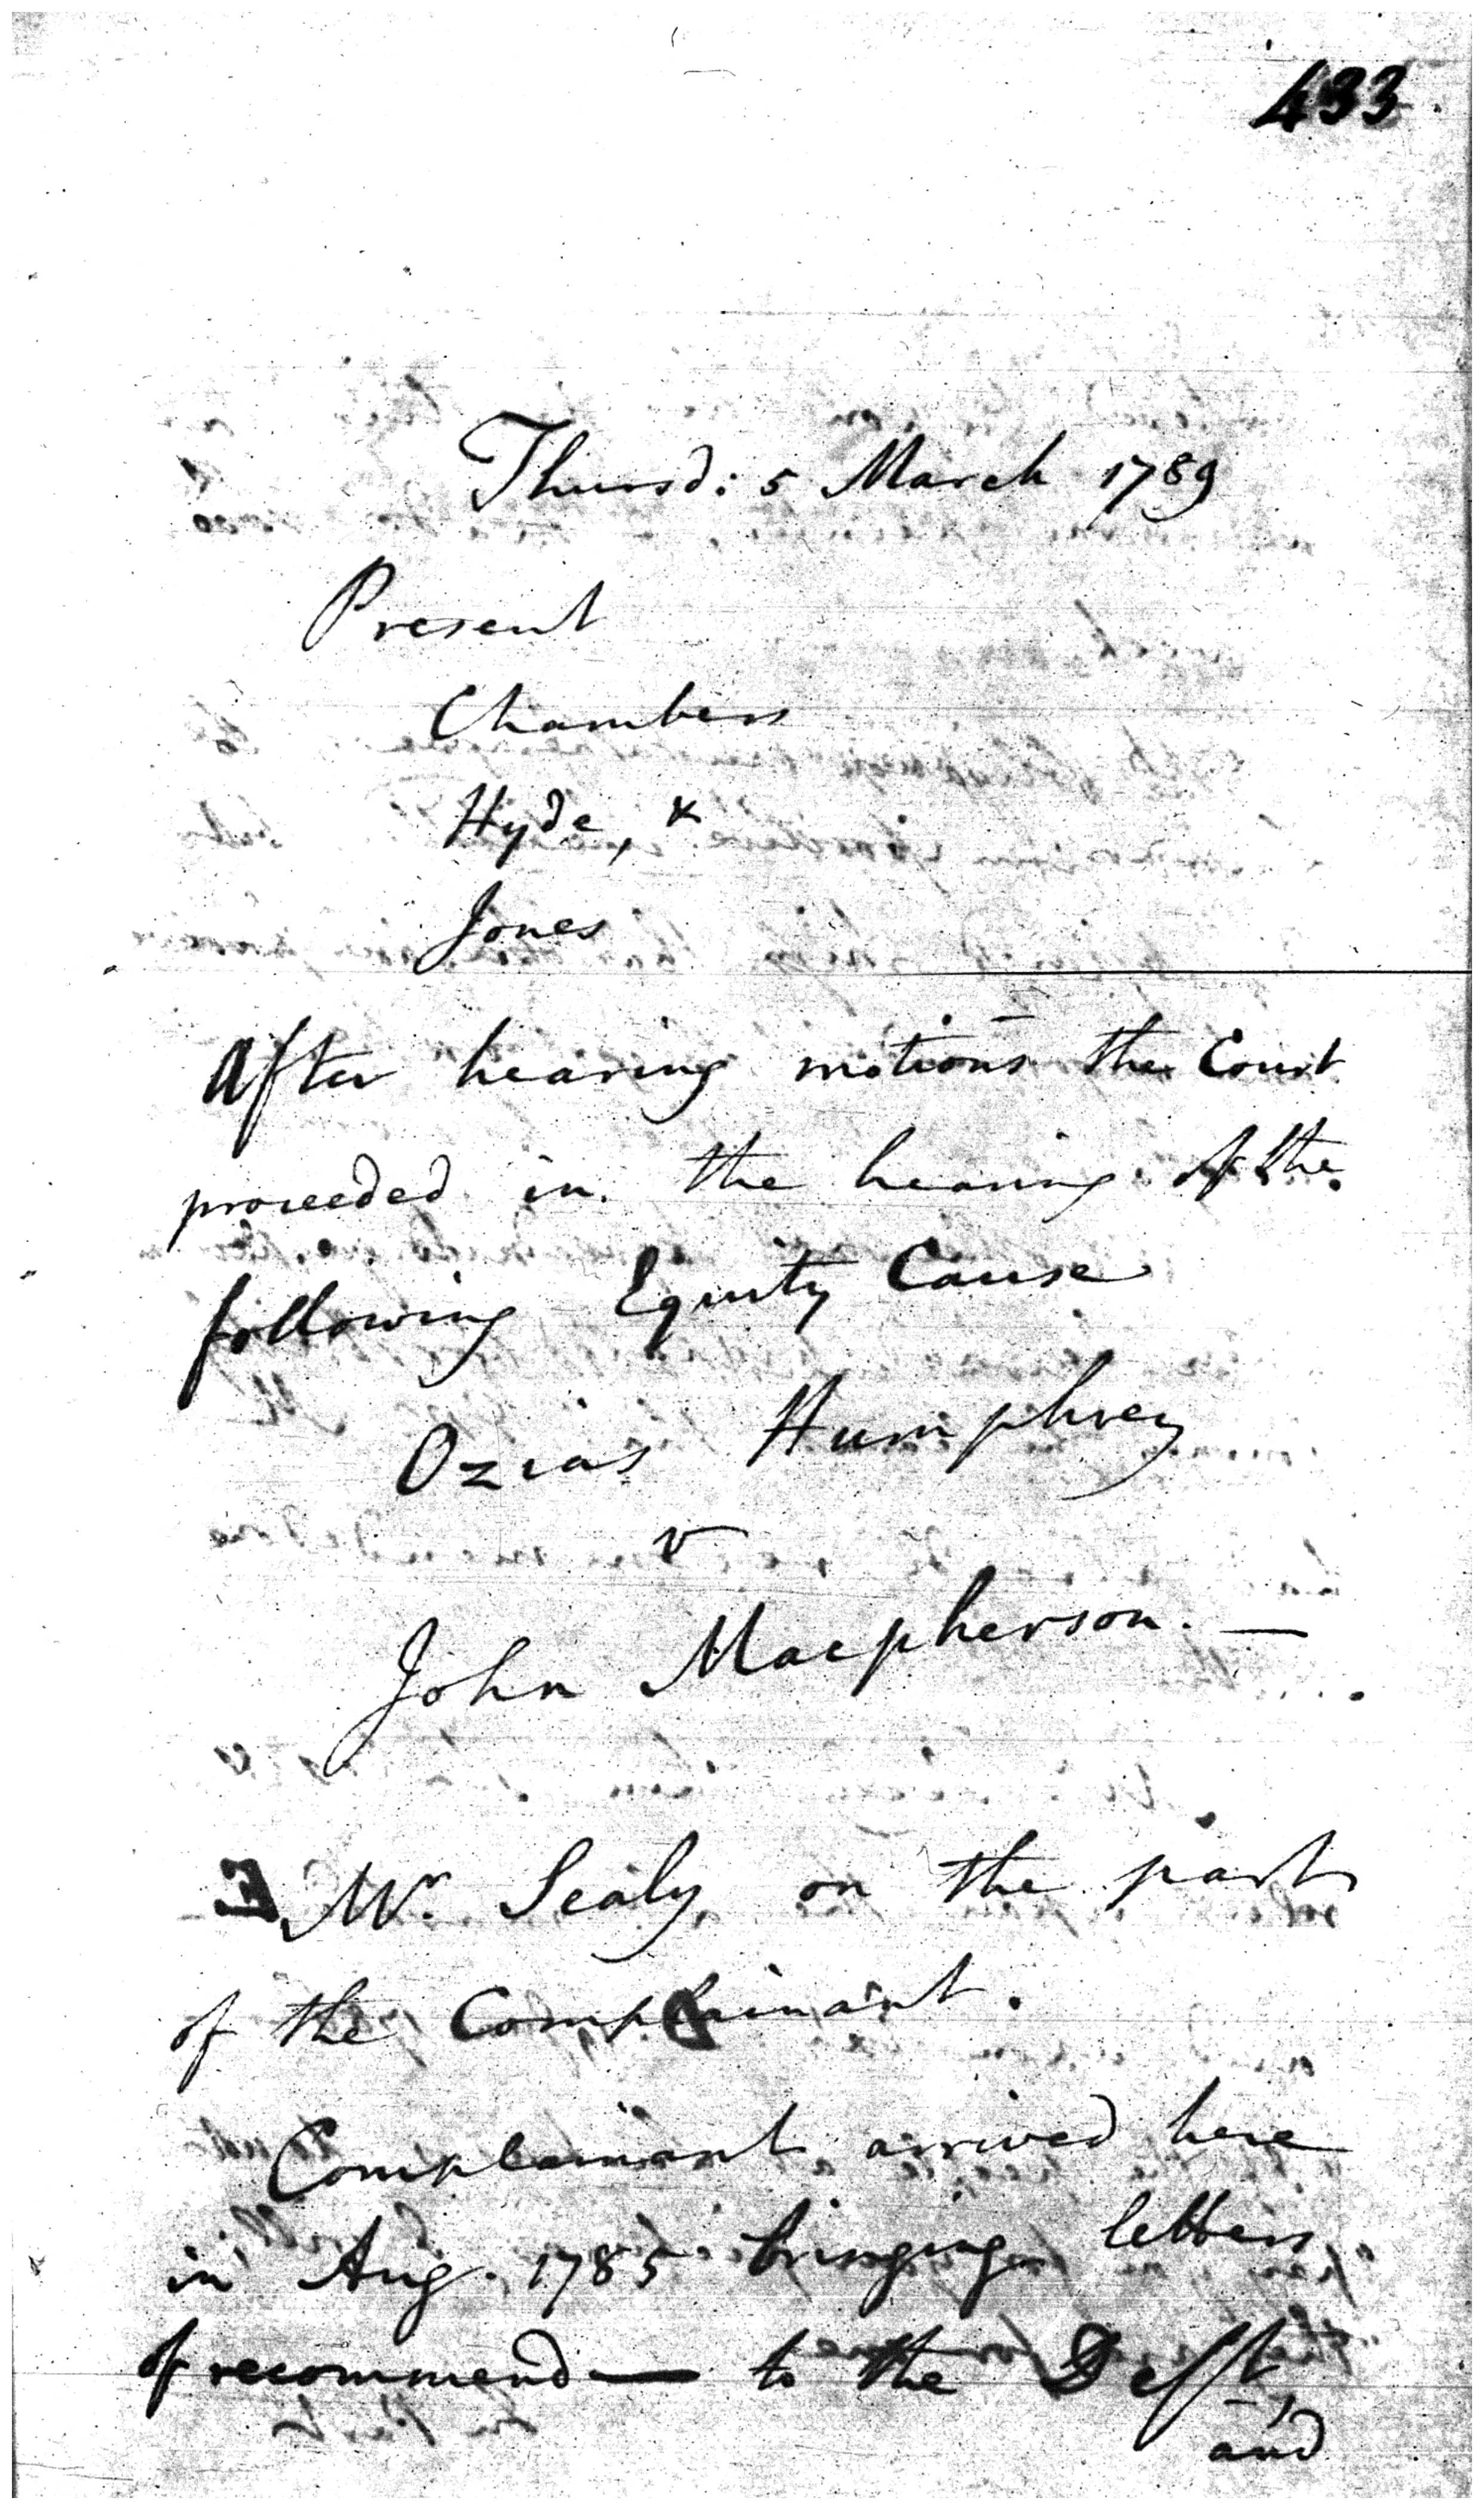 433
Thursd: 5 March 1789
Present
Chambers
Hyde, &
Jones
After hearing motions the Court
proceeded in the hearing of the
following Equity Cause
Ozias Humphrey
v
John Macpherson. —
Mr. Sealy on the part
of the Complainant.
Complainant arrived here
in Aug. 1785 bringing letters
of recommend— to the Deft,
and